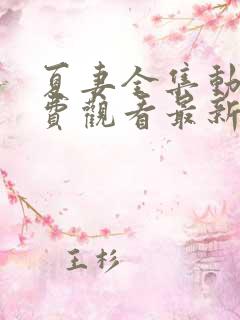 夏妻全集動
費觀看最新
王杉